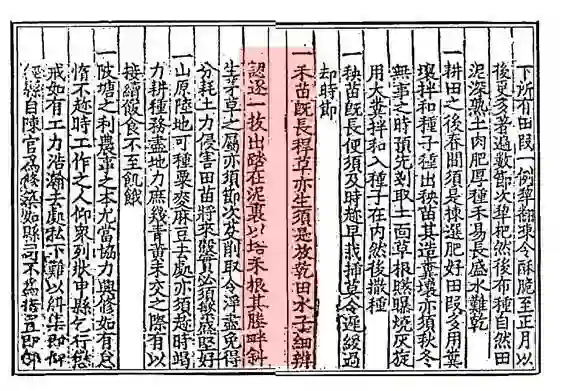 下所有田段一例犁翻凍令酥脆至正月以
後更多著遍數節次犁杷然後布種自然田
泥深熟土肉肥厚種禾易長盛水難乾
一耕田之後春間須是揀選肥好田段多用糞
壤拌和種子種出秧苗其造糞壤亦須秋冬
無事之時預先剗取土面草根曝燒灰旋
用大糞拌和入種子在内然後撒種
一秧苗既長便須及時趁早栽插莫令遲緩過
却時節
一禾苗既長稈草亦生須是放乾田水子細辨
認逐一拔出踏在泥裏以培禾根其塍畔斜
生茅草之屬亦須節次芟削取令淨盡免得
分耗土力侵害田苗將來穀實必須繁盛堅好
一山原陸地可種粟麥麻豆去處亦須趁時竭
力耕種務盡地力庶幾青黃未交之際有以
接續飲食不至飢餓
一陂塘之利農事之本尤當協力興修如有怠
惰不趁時工作之人仰衆列狀申縣乞行懲
戒如有工力浩瀚去處私下難以糾集即仰
經縣自陳官爲修築如縣司不爲措置即仰